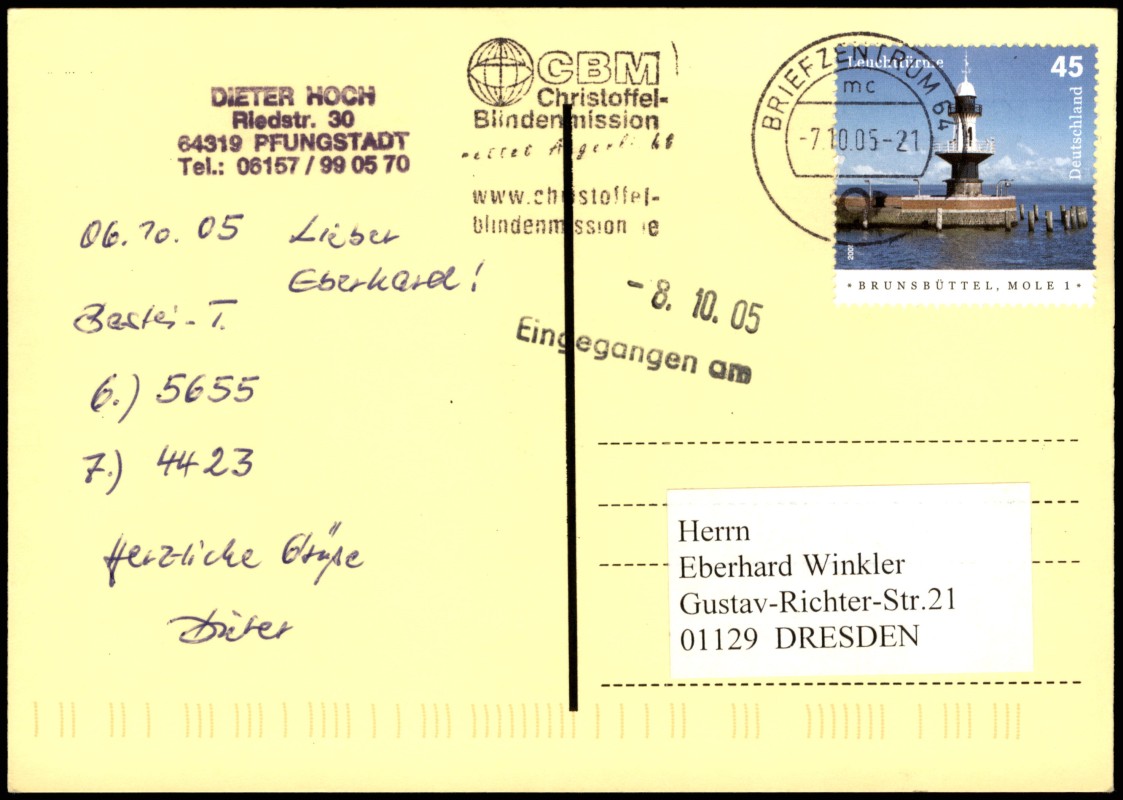 DIETER HOCH
Riedstr. 30
64319 PFUNGSTADT
Tel.: 06157 / 99 05 70
CBM
Christoffel-
Blindenmission
www.christoffel-
blindenmission
BRIEFZENTRUM 64
mc
-7.10.05-21
Leuchttürme
45
Deutschland
BRUNSBÜTTEL, MOLE 1
06.10.05 Lieber
Eberhard!
Bastei-T.
6.) 5655
7.) 4423
Herzliche Grüße
Dieter
-8. 10. 05
Eingegangen am
Herrn
Eberhard Winkler
Gustav-Richter-Str.21
01129 DRESDEN